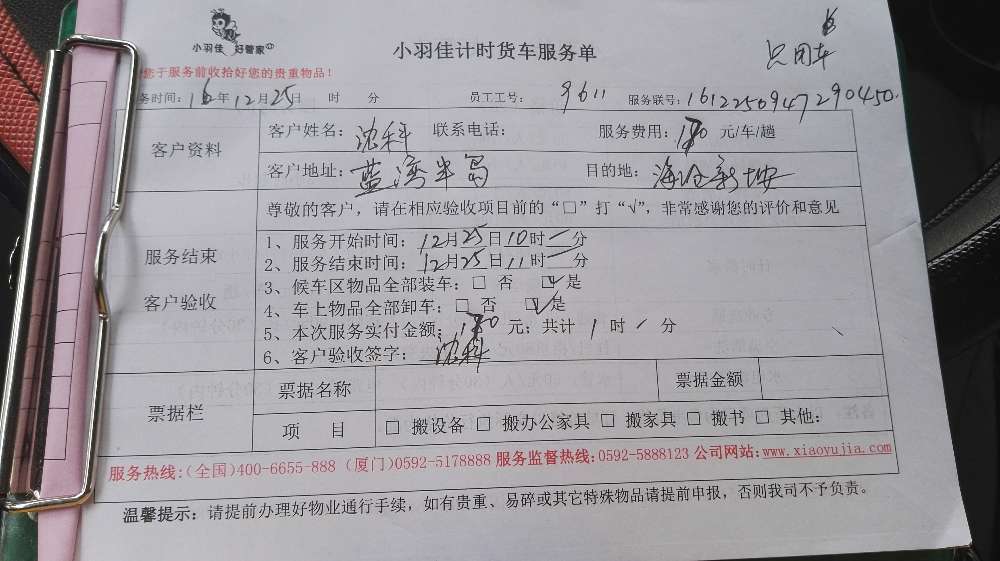 小羽佳 好管家
小羽佳计时货车服务单
只用车
您于服务前收拾好您的贵重物品！
务时间：16年12月25日 时 分 员工工号：9611 服务联号：1612250947290450
客户资料
客户姓名：沈科 联系电话： 服务费用： 元/车/趟
客户地址：蓝湾半岛 目的地：海沧新垵
尊敬的客户，请在相应验收项目前的“□”打“√”，非常感谢您的评价和意见
服务结束
客户验收
1、服务开始时间：12月25日10时 分
2、服务结束时间：12月25日11时 分
3、候车区物品全部装车：□ 否 ☑ 是
4、车上物品全部卸车：□ 否 ☑ 是
5、本次服务实付金额： 元；共计 1 时 分
6、客户验收签字：沈科
票据栏
票据名称 票据金额
项 目 □ 搬设备 □ 搬办公家具 □ 搬家具 □ 搬书 □ 其他:
服务热线:(全国)400-6655-888 (厦门)0592-5178888 服务监督热线:0592-5888123 公司网站:www.xiaoyujia.com
温馨提示：请提前办理好物业通行手续，如有贵重、易碎或其它特殊物品请提前申报，否则我司不予负责。